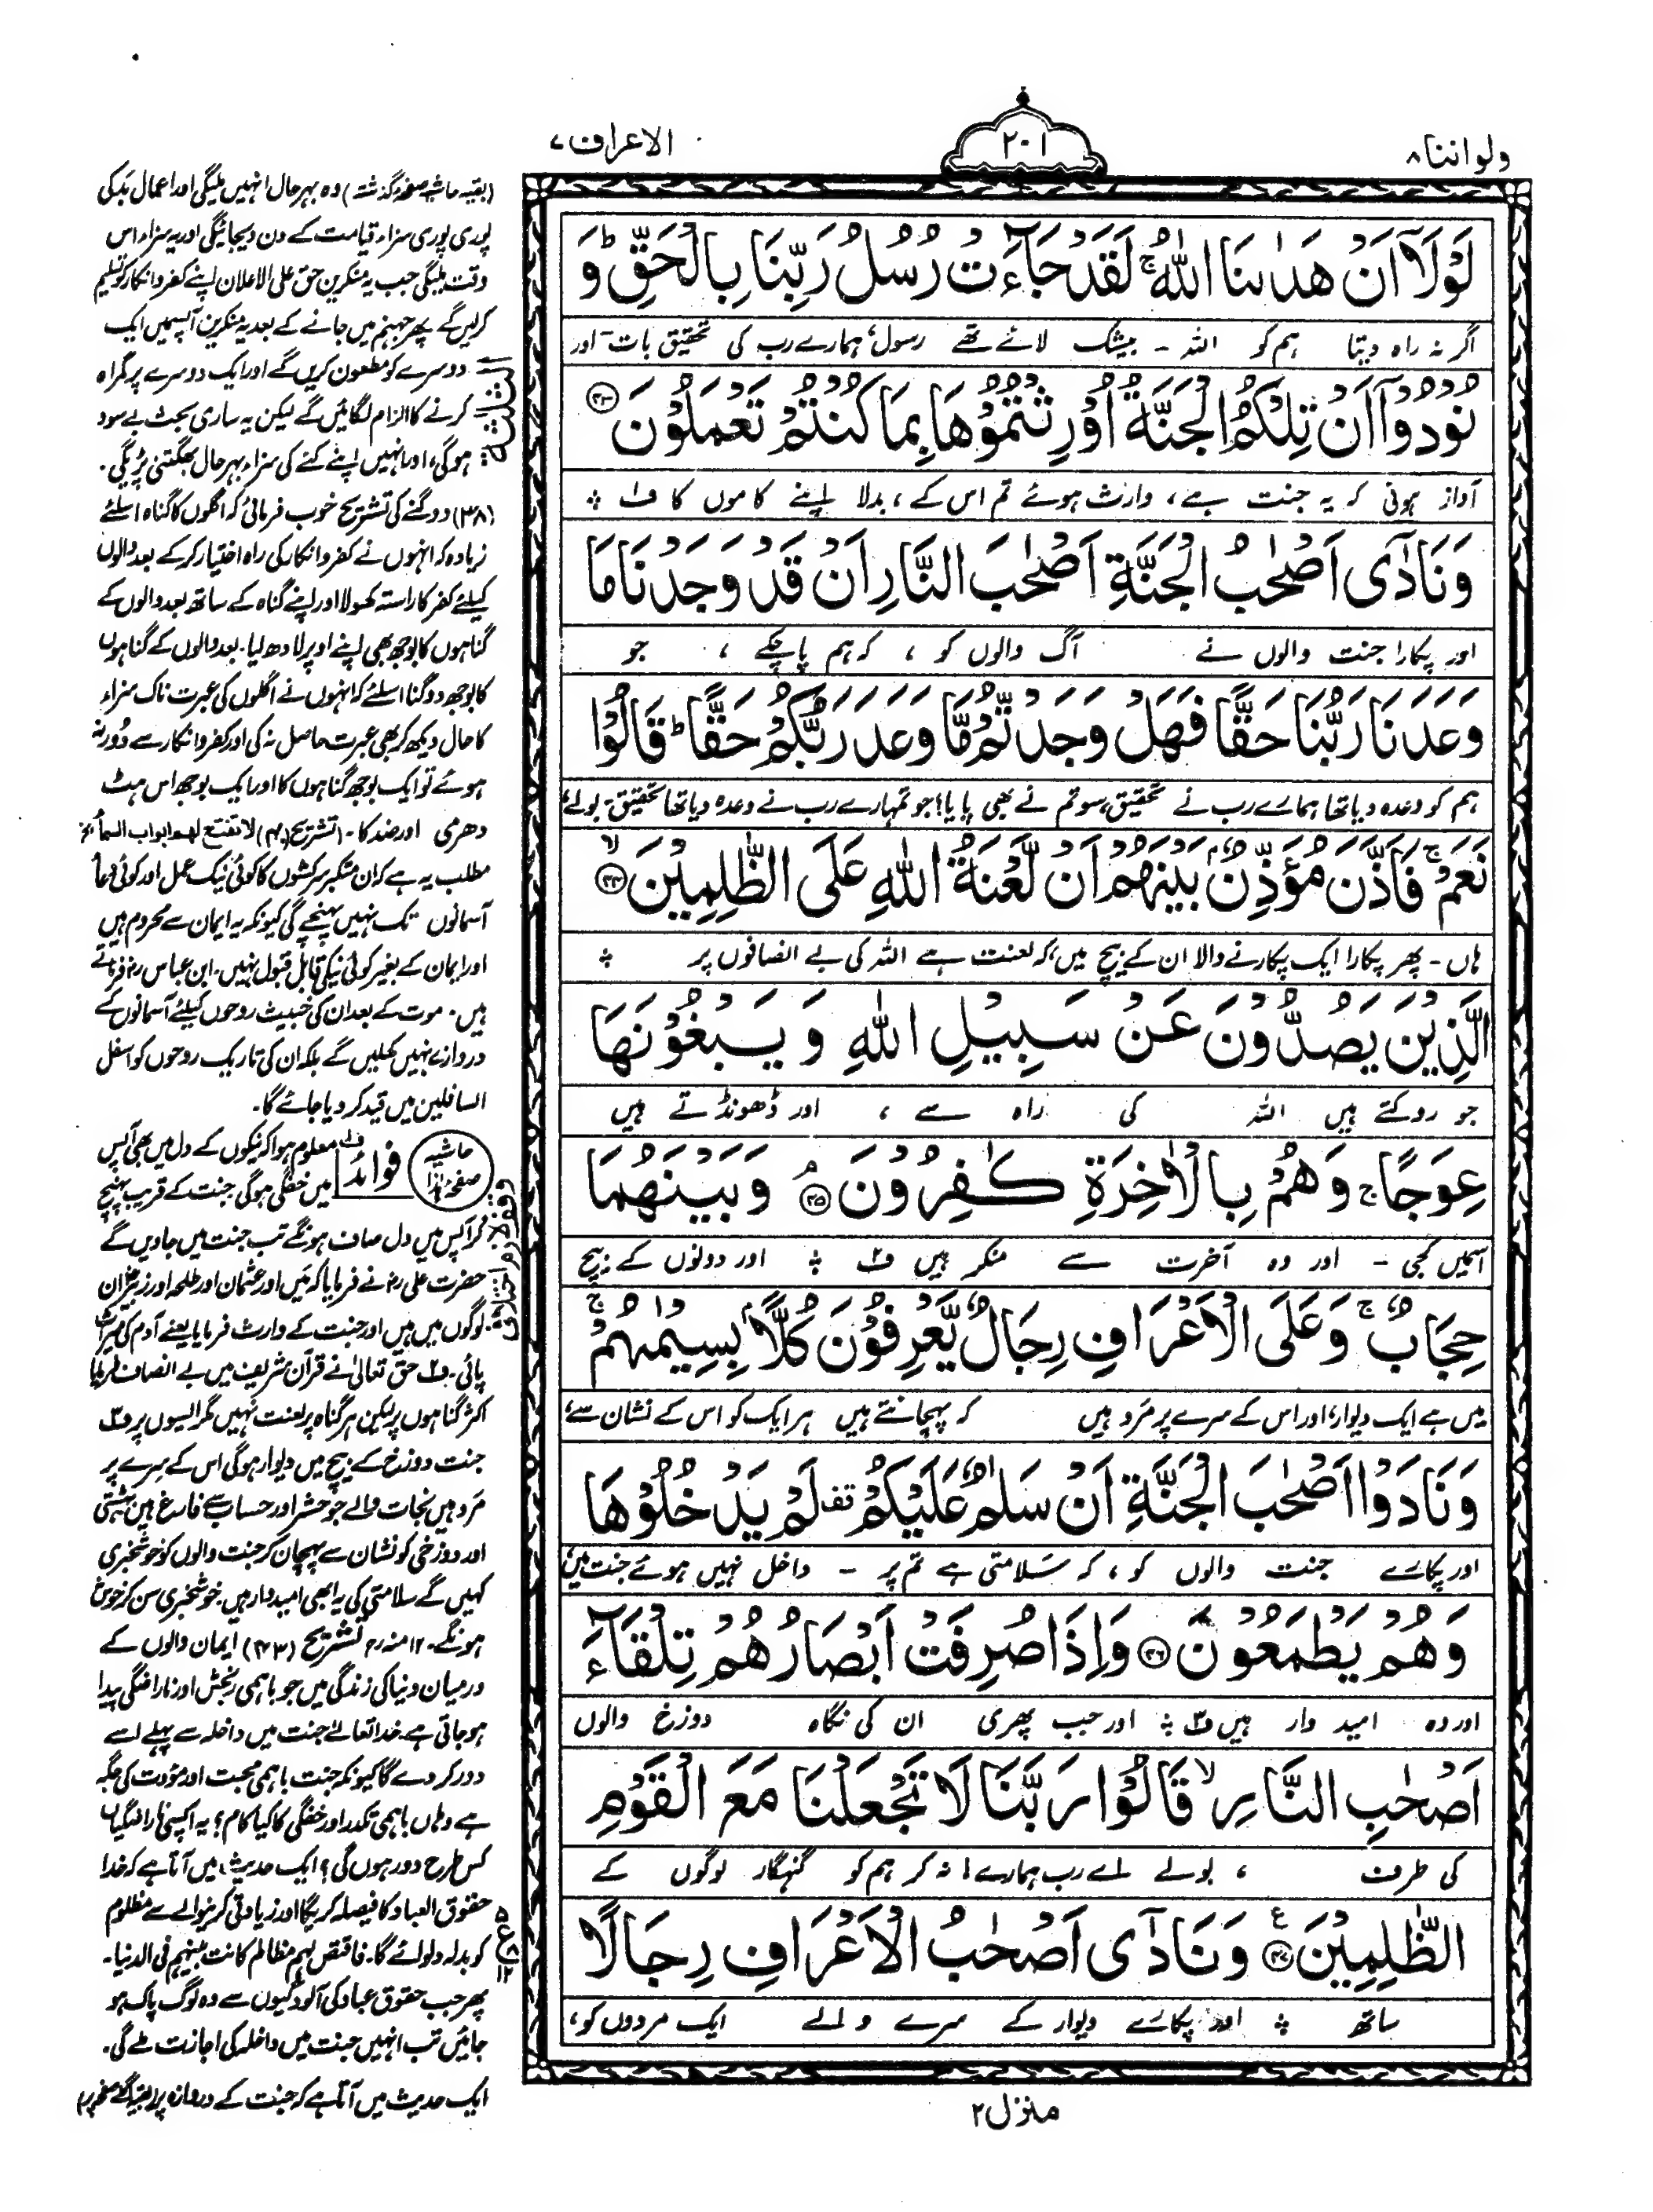 ولو اننا ۸
۲۰۱
الاعراف ۷
لَوْلَاۤ اَنْ هَدٰىنَا اللّٰهُ ۚ لَقَدْ جَآءَتْ رُسُلُ رَبِّنَا بِالْحَقِّ ؕ وَ
اگر نہ راہ دیتا ہم کو اللہ ۔ بیشک لائے تھے رسول، ہمارے رب کی تحقیق بات ۔ اور
نُوْدُوْۤا اَنْ تِلْكُمُ الْجَنَّةُ اُوْرِثْتُمُوْهَا بِمَا كُنْتُمْ تَعْمَلُوْنَ ﴿۴۳﴾
آواز ہوئی کہ یہ جنت ہے، وارث ہوئے تم اس کے، بدلا اپنے کاموں کا ف۱ ؞
وَنَادٰۤى اَصْحٰبُ الْجَنَّةِ اَصْحٰبَ النَّارِ اَنْ قَدْ وَجَدْنَا مَا
اور پکارا جنت والوں نے آگ والوں کو ، کہ ہم پاچکے ، جو
وَعَدَنَا رَبُّنَا حَقًّا فَهَلْ وَجَدْتُّمْ مَّا وَعَدَ رَبُّكُمْ حَقًّا ؕ قَالُوْا
ہم کو وعدہ دیا تھا ہمارے رب نے تحقیق، سو تم نے بھی پایا؟ جو تمہارے رب نے وعدہ دیا تھا تحقیق۔ بولے،
نَعَمْ ۚ فَاَذَّنَ مُؤَذِّنٌۢ بَيْنَهُمْ اَنْ لَّعْنَةُ اللّٰهِ عَلَى الظّٰلِمِيْنَ ۙ﴿۴۴﴾
ہاں ۔ پھر پکارا ایک پکارنے والا ان کے بیچ میں، کہ لعنت ہے اللہ کی بے انصافوں پر ؞
الَّذِيْنَ يَصُدُّوْنَ عَنْ سَبِيْلِ اللّٰهِ وَ يَبْغُوْنَهَا
جو روکتے ہیں اللہ کی راہ سے ، اور ڈھونڈتے ہیں
عِوَجًا ۚ وَهُمْ بِالْاٰخِرَةِ كٰفِرُوْنَ ۘ﴿۴۵﴾ وَبَيْنَهُمَا
اسمیں کجی ۔ اور وہ آخرت سے منکر ہیں ف۲ ؞ اور دونوں کے بیچ
حِجَابٌ ۚ وَعَلَى الْاَعْرَافِ رِجَالٌ يَّعْرِفُوْنَ كُلًّاۢ بِسِيْمٰىهُمْ ۚ
میں ہے ایک دیوار، اور اس کے سرے پر مرد ہیں کہ پہچانتے ہیں ہر ایک کو اس کے نشان سے،
وَنَادَوْا اَصْحٰبَ الْجَنَّةِ اَنْ سَلٰمٌ عَلَيْكُمْ ۫ لَمْ يَدْخُلُوْهَا
اور پکارے جنت والوں کو ، کہ سلامتی ہے تم پر ۔ داخل نہیں ہوئے جنت میں،
وَهُمْ يَطْمَعُوْنَ ﴿۴۶﴾ وَاِذَا صُرِفَتْ اَبْصَارُهُمْ تِلْقَآءَ
اور وہ امید وار ہیں ف۳ ؞ اور جب پھری ان کی نگاہ دوزخ والوں
اَصْحٰبِ النَّارِ ۙ قَالُوْا رَبَّنَا لَا تَجْعَلْنَا مَعَ الْقَوْمِ
کی طرف ، بولے اے رب ہمارے! نہ کر ہم کو گنہگار لوگوں کے
الظّٰلِمِيْنَ ﴿۴۷﴾ وَنَادٰۤى اَصْحٰبُ الْاَعْرَافِ رِجَالًا
ساتھ ؞ اور پکارے دیوار کے سرے والے ایک مردوں کو،
منزل ۲
(بقیہ حاشیہ صفحہ گذشتہ) وہ بہرحال انہیں ملیگی اور اعمال بَد کی
پوری پوری سزاء قیامت کے دن دیجائیگی اور یہ سزاء اس
وقت ملیگی جب یہ منکرین حق علی الاعلان اپنے کفر و انکار کو تسلیم
کرلیں گے پھر جہنم میں جانے کے بعد یہ منکرین آپسمیں ایک
دوسرے کو مطعون کریں گے اور ایک دوسرے پر گمراہ
کرنے کا الزام لگائیں گے لیکن یہ ساری بحث بے سود
ہوگی، اور انہیں اپنے کئے کی سزاء بہرحال بھگتنی پڑیگی ۔
(۳۸) دوگنے کی تشریح خوب فرمائی کہ اگلوں کا گناہ اسلئے
زیادہ کہ انہوں نے کفر و انکار کی راہ اختیار کر کے بعد والوں
کیلئے کفر کا راستہ کھولا اور اپنے گناہ کے ساتھ بعد والوں کے
گناہوں کا بوجھ بھی اپنے اوپر لادھ لیا۔ بعد والوں کے گناہوں
کا بوجھ دوگنا اسلئے کہ انہوں نے اگلوں کی عبرت ناک سزاء
کا حال دیکھ کر بھی عبرت حاصل نہ کی اور کفر و انکار سے دُور نہ
ہوئے تو ایک بوجھ گناہوں کا اور ایک بوجھ اس ہٹ
دھرمی اور ضد کا۔ (تشریح (۴۰) لا تفتح لھم ابواب السماء الخ
مطلب یہ ہے کہ ان متکبر سرکشوں کا کوئی نیک عمل اور کوئی دعا
آسمانوں تک نہیں پہنچے گی کیونکہ یہ ایمان سے محروم ہیں
اور ایمان کے بغیر کوئی نیکی قابل قبول نہیں۔ ابن عباس رض فرماتے
ہیں۔ موت کے بعد ان کی خبیث روحوں کیلئے آسمانوں کے
دروازے نہیں کھلیں گے بلکہ ان کی تاریک روحوں کو اسفل
السافلین میں قید کر دیا جائے گا۔
حاشیہ صفحہ ہٰذا
فوائد
ف۱ معلوم ہوا کہ نیکوں کے دل میں بھی آپس
میں خفگی ہوگی جنت کے قریب پہنچ
کر آپس میں دل صاف ہونگے تب جنت میں جاویں گے
حضرت علی رض نے فرمایا کہ مَیں اور عثمان اور طلحہ اور زبیر ان
لوگوں میں ہیں اور جنت کے وارث فرمایا یعنے آدم کی میراث
پائی۔ ف۲ حق تعالیٰ نے قرآن شریف میں بے انصاف فرمایا
اکثر گناہوں پر لیکن ہر گناہ پر لعنت نہیں مگر ایسوں پر ف۳
جنت دوزخ کے بیچ میں دیوار ہوگی اس کے سرے پر
مَرد ہیں نجات والے جو حشر اور حساب سے فارغ ہیں بہشتی
اور دوزخی کو نشان سے پہچان کر جنت والوں کو خوشخبری
کہیں گے سلامتی کی یہ ابھی امیدوار ہیں خوشخبری سن کر خوش
ہونگے۔ ۱۲ منہ رح تشریح (۴۳) ایمان والوں کے
درمیان دنیا کی زندگی میں جو باہمی رنجش اور ناراضگی پیدا
ہوجاتی ہے خدا تعالےٰ جنت میں داخلہ سے پہلے اسے
دور کر دے گا کیونکہ جنت باہمی محبت اور مؤدت کی جگہ
ہے وہاں باہمی تکدر اور خفگی کا کیا کام؟ یہ آپسی ناراضگیاں
کس طرح دور ہوں گی؟ ایک حدیث میں آتا ہے کہ خدا
حقوق العباد کا فیصلہ کریگا اور زیادتی کرنیوالے سے مظلوم
کو بدلہ دلوائے گا۔ فاقتص لہم مظالم کانت بینہم فی الدنیا۔
پھر جب حقوق عباد کی آلودگیوں سے وہ لوگ پاک ہو
جائیں تب انہیں جنت میں داخلہ کی اجازت ملے گی۔
ایک حدیث میں آتا ہے کہ جنت کے دروازہ پر
ع
۵
۸
۱۲